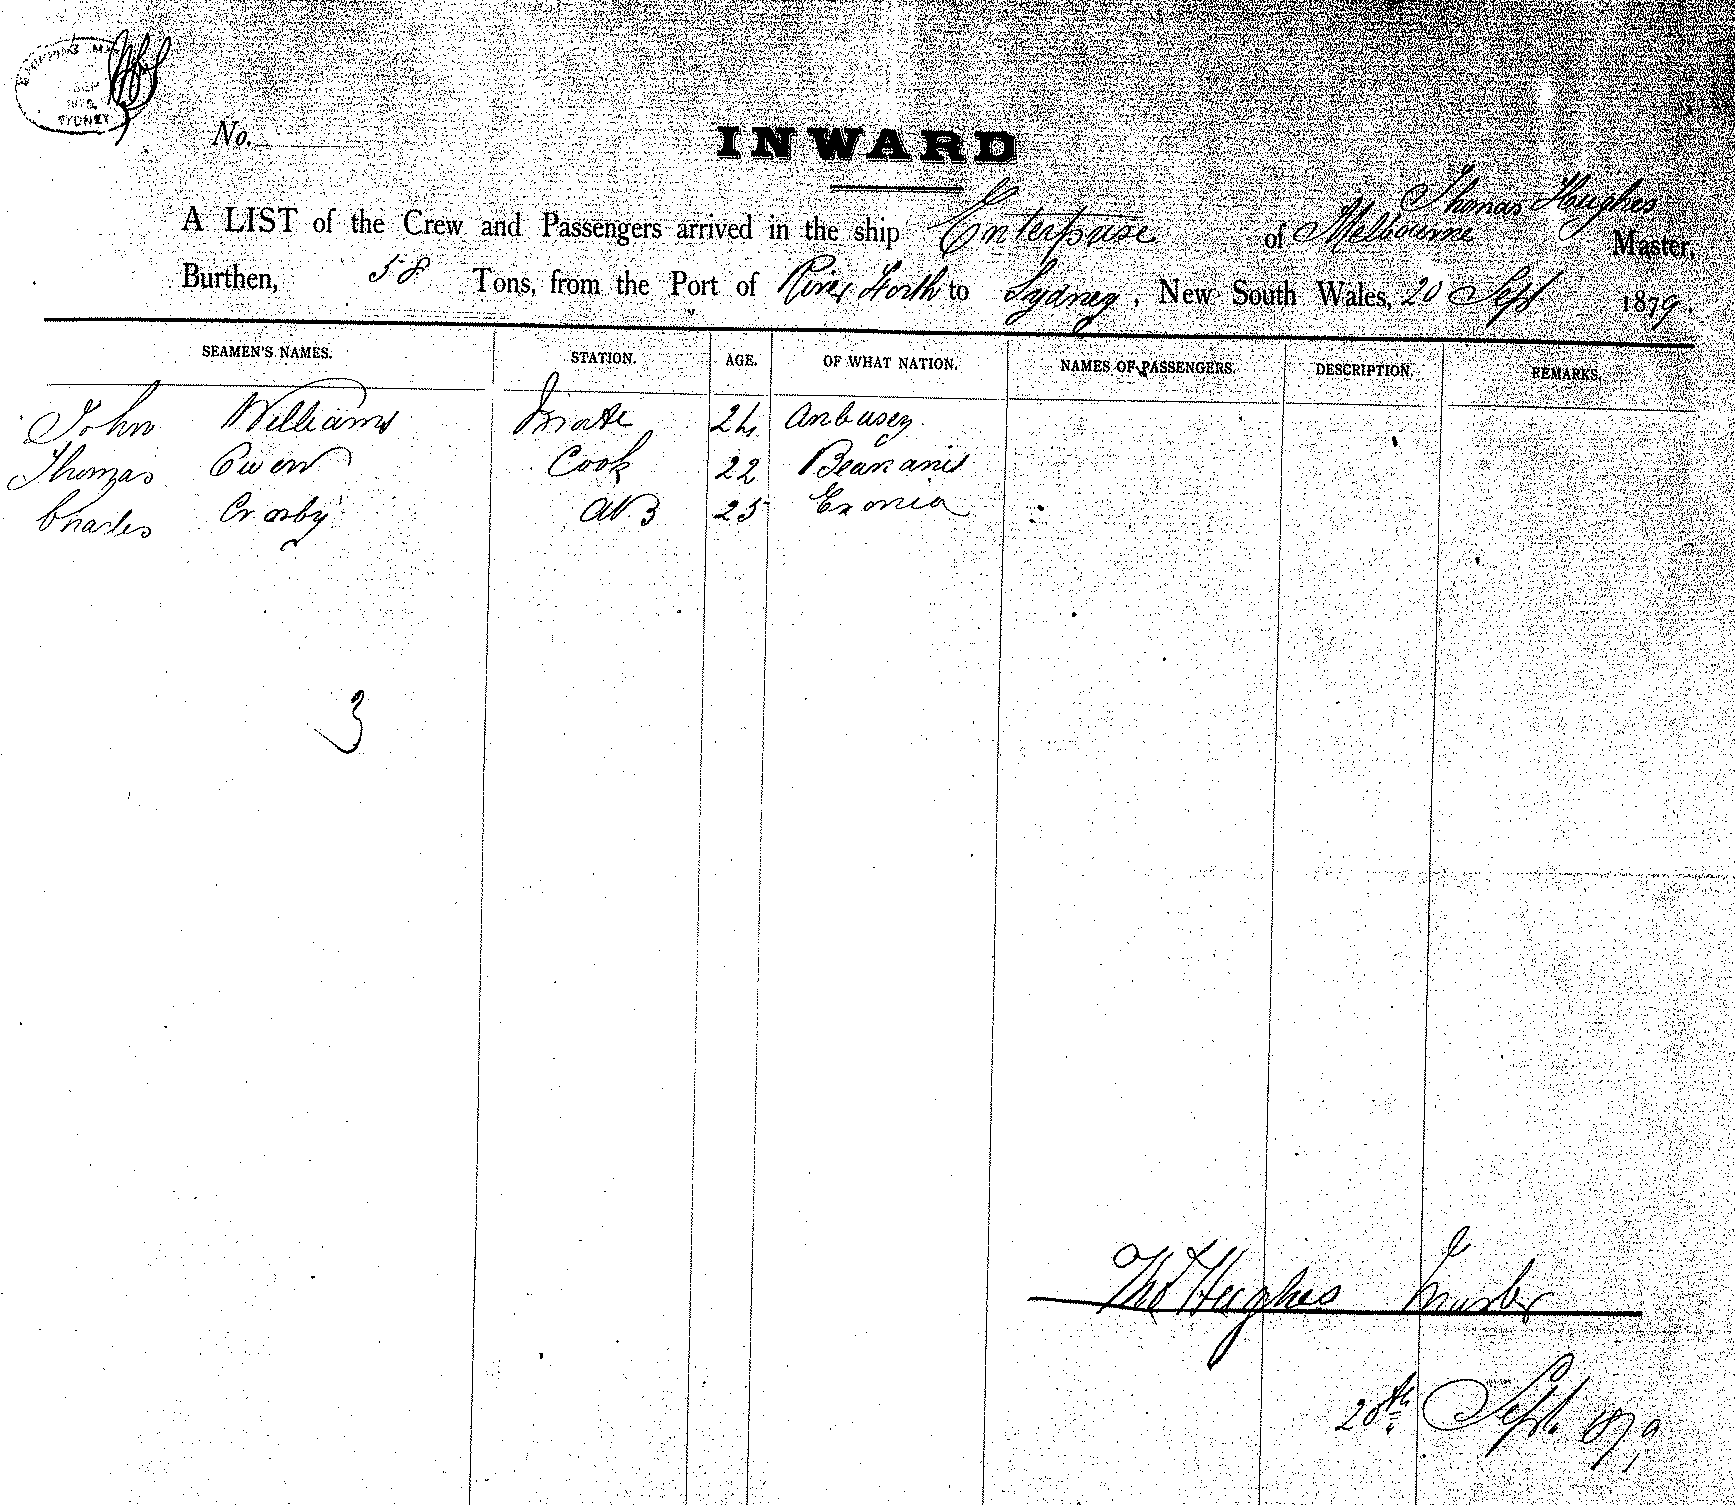 SEP
SYDNEY
No.
INWARD
Thomas Hughes
A LIST of the Crew and Passengers arrived in the ship Enterprise of Melbourne Master,
Burthen, 58 Tons, from the Port of River Forth to Sydney, New South Wales, 20 Sept 1879.
SEAMEN'S NAMES. STATION. AGE. OF WHAT NATION. NAMES OF PASSENGERS. DESCRIPTION. REMARKS.
John Williams Mate 24
Thomas Owen Cook 22
Charles Crosby AB 25
3
Thos Hughes Master
20th Sept 1879